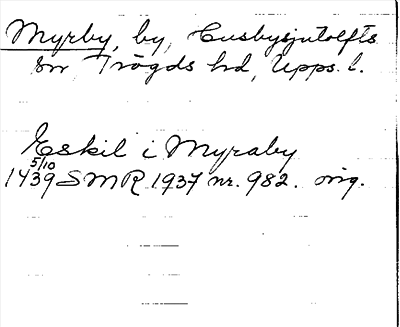 Myrby, by, Husbysjutolfts
sn Trögds hd, Upps. l.
Eskil i Myraby
5/10
1439 SMR 1937 nr. 982. orig.